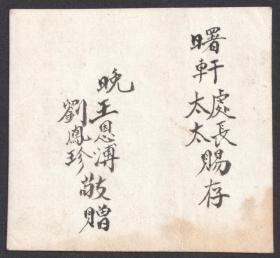 曙軒處長賜存
太太
晚王恩溥敬贈
劉鳳珍